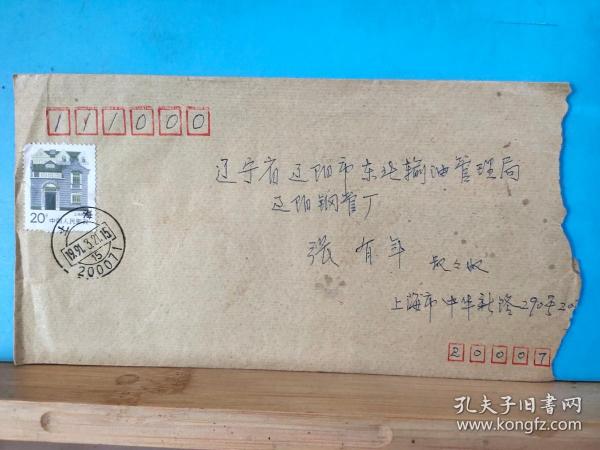 111000
辽宁省辽阳市东北输油管理局
辽阳钢管厂
张有年
叔々收
上海市中华新路290弄20
20007
20分
中国人民邮政
上海
1991.3.21.15
15
200071
孔夫子旧书网
www.kongfz.com